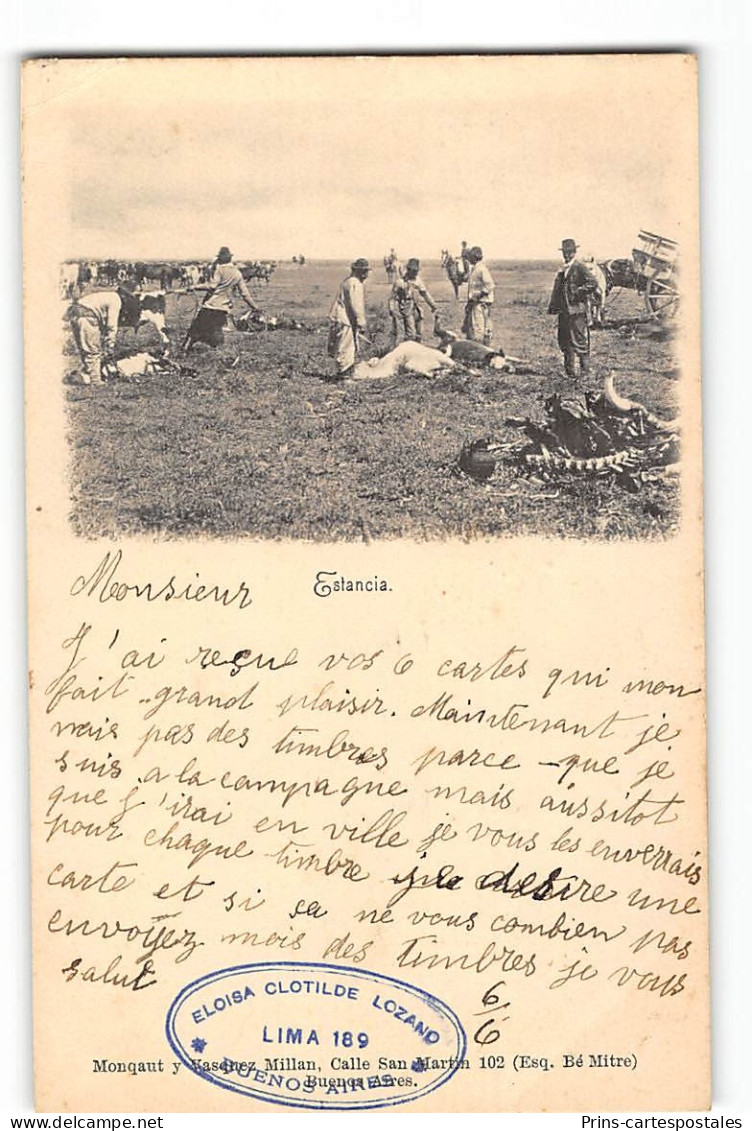 Estancia.
Monsieur
J'ai reçue vos 6 cartes qui mon
fait grand plaisir. Maintenant je
mais pas des timbres parce que je
suis a la campagne mais aussitot
que j'irai en ville je vous les enverrais
pour chaque timbre je desire une
carte et si sa ne vous combien pas
envoyez mois des timbres je vous
salut
6/6
ELOISA CLOTILDE LOZANO
LIMA 189
BUENOS AIRES
Monqaut y Vasquez Millan, Calle San Martin 102 (Esq. Bé Mitre)
Buenos Aires.
Prins-cartespostales